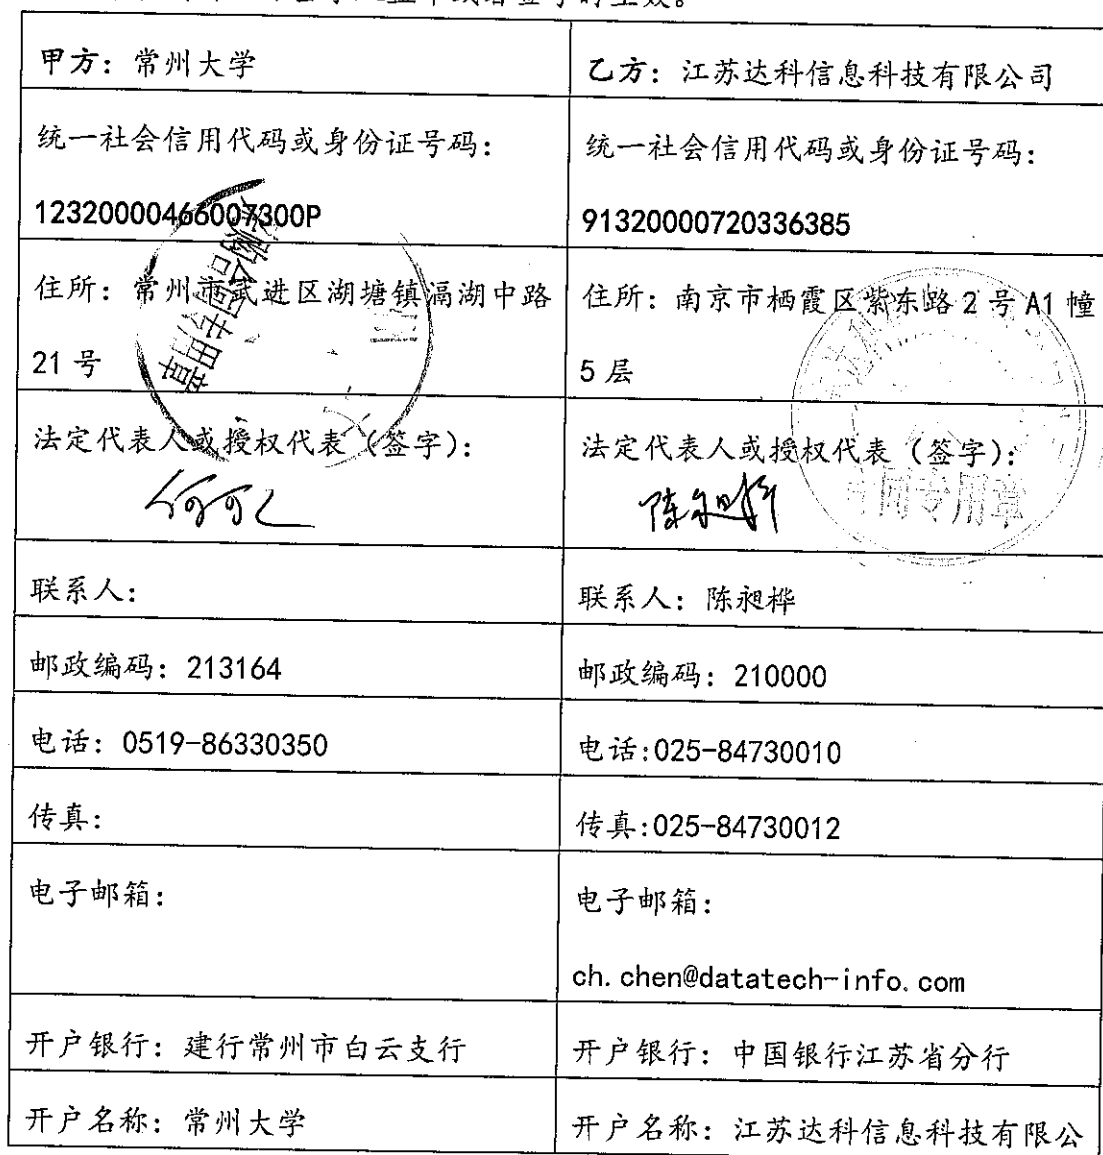 甲方：常州大学
乙方：江苏达科信息科技有限公司
统一社会信用代码或身份证号码：
12320000466007300P
统一社会信用代码或身份证号码：
91320000720336385
住所：常州市武进区湖塘镇滆湖中路
21 号
住所：南京市栖霞区紫东路 2 号 A1 幢
5 层
法定代表人或授权代表（签字）：
法定代表人或授权代表（签字）：
合同专用章
联系人：
联系人：陈昶桦
邮政编码：213164
邮政编码：210000
电话：0519-86330350
电话:025-84730010
传真：
传真:025-84730012
电子邮箱：
电子邮箱：
ch.chen@datatech-info.com
开户银行：建行常州市白云支行
开户银行：中国银行江苏省分行
开户名称：常州大学
开户名称：江苏达科信息科技有限公